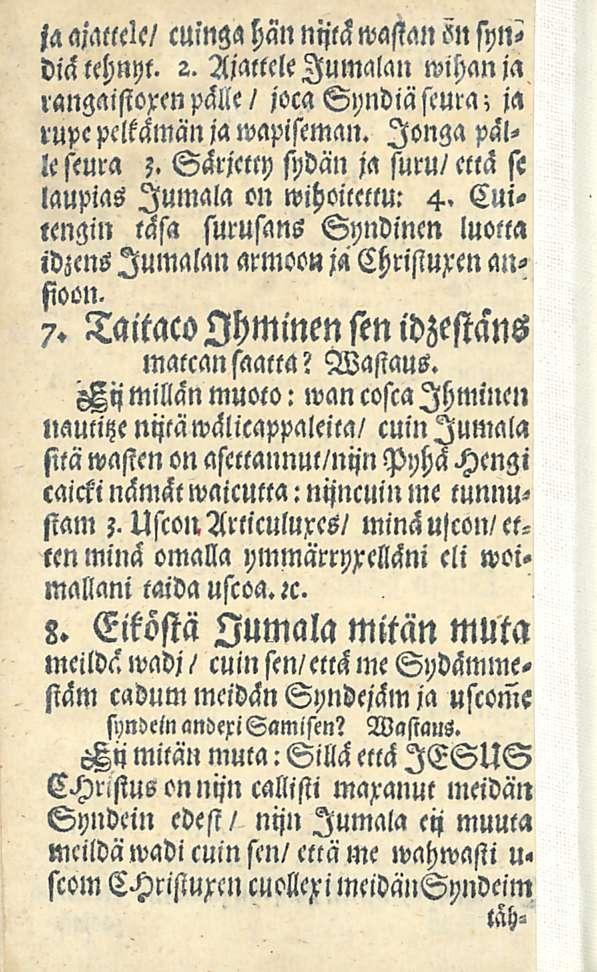 ja ajattele/ cuinga hän nijtä wastan on syn-
diä tehnyt. 2. Ajattele Jumalan wihan ja
rangaistoxen pälle / joca Syndiä seura; ja
rupe pelkämän ja wapiseman. Jonga päl-
le seura 3. Särjetty sydän ja suru/ että se
laupias Jumala on wihoitettu: 4. Cui-
tengin täsa surusans Syndinen luotta
idzens Jumalan armoon ja Christuxen an-
sioon.
7. Taitaco Ihminen sen idzestäns
matcan saatta? Wastaus.
Eij millän muoto: wan cosca Ihminen
nautitze nijtä wälicappaleita/ cuin Jumala
sitä wasten on asettannut/ nijn Pyhä Hengi
caicki nämät waicutta: nijncuin me tunnu-
stam 3. Uscon Articuluxes/ minä uscon/ et-
ten minä omalla ymmärryxelläni eli woi-
mallani taida uscoa. ꝛc.
8. Eiköstä Jumala mitän muta
meildä wadj / cuin sen/ että me Sydämme-
stäm cadum meidän Syndejäm ja uscom̃e
syndein andexi Samisen? Wastaus.
Eij mitän muta: Sillä että JESUS
CHristus on nijn callisti maxanut meidän
Syndein edest / nijn Jumala eij muuta
meildä wadi cuin sen/ että me wahwasti u-
scom CHristuxen cuollexi meidän Syndeim
täh-